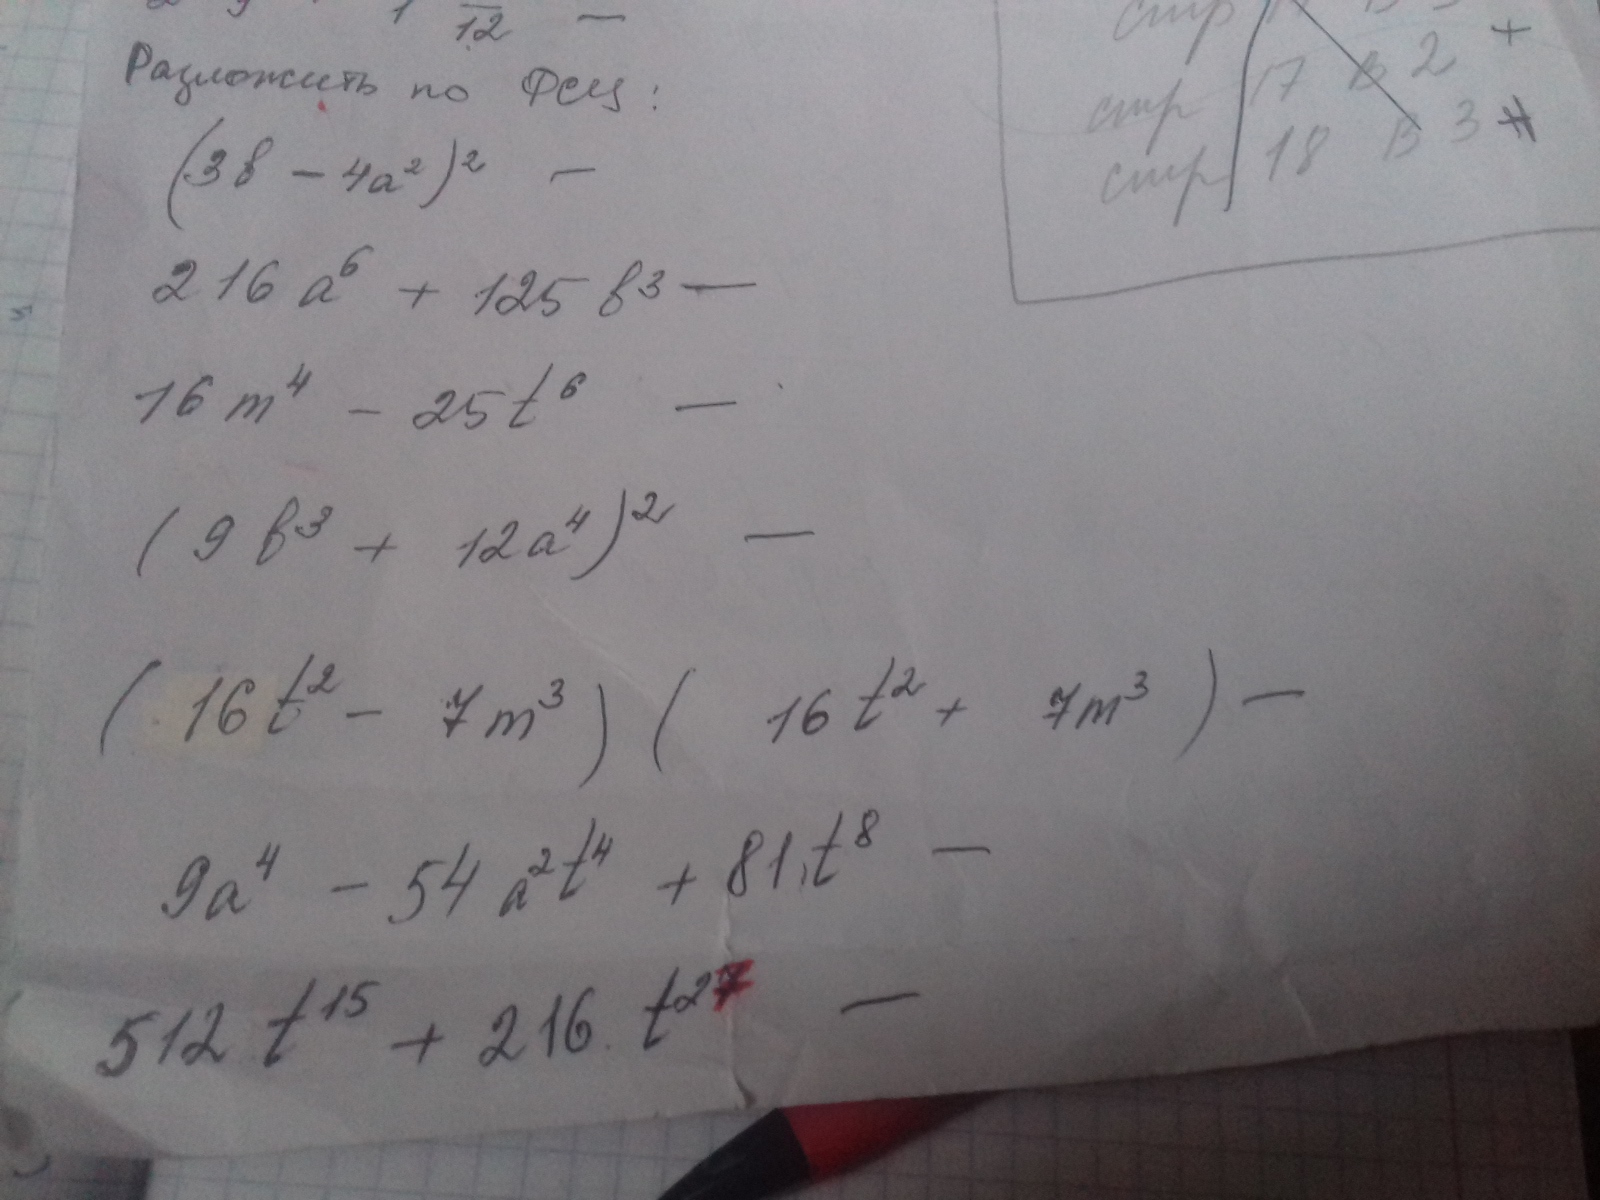 1 12 —
Разложить по ФСУ:
(3в - 4a²)² —
216 a⁶ + 125 в³ —
16 m⁴ - 25t⁶ —
(9 в³ + 12a⁴)² —
(16t² - 7m³)(16t² + 7m³) —
9a⁴ - 54 a²t⁴ + 81t⁸ —
512 t¹⁵ + 216 t²⁷ —
стр
стр 17 В 2 +
стр 18 В 3